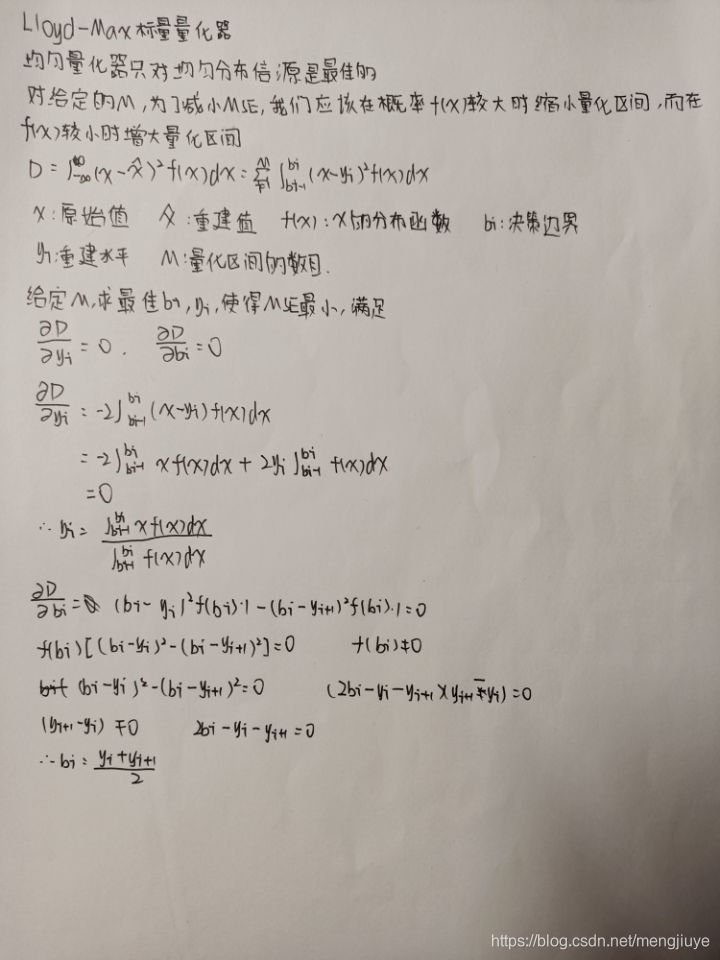 Lloyd-Max标量量化器
均匀量化器只对均匀分布信源是最佳的
对给定的M,为了减小MSE,我们应该在概率f(x)较大时缩小量化区间,而在
f(x)较小时增大量化区间
D = ∫_{-∞}^{∞}(x-x̂)²f(x)dx = Σ_{i=1}^{M} ∫_{bi-1}^{bi}(x-yi)²f(x)dx
x:原始值 x̂:重建值 f(x):x的分布函数 bi:决策边界
yi:重建水平 M:量化区间的数目.
给定M,求最佳bi,yi,使得MSE最小,满足
∂D/∂yi = 0. ∂D/∂bi = 0
∂D/∂yi = -2∫_{bi-1}^{bi}(x-yi)f(x)dx
= -2∫_{bi-1}^{bi} xf(x)dx + 2yi∫_{bi-1}^{bi} f(x)dx
=0
∴yi = ∫_{bi-1}^{bi} xf(x)dx / ∫_{bi-1}^{bi} f(x)dx
∂D/∂bi = (bi-yi)²f(bi)·1-(bi-yi+1)²f(bi)·1=0
f(bi)[(bi-yi)²-(bi-yi+1)²]=0 f(bi)≠0
(bi-yi)²-(bi-yi+1)²=0 (2bi-yi-yi+1)(yi+1-yi)=0
(yi+1-yi)≠0 2bi-yi-yi+1=0
∴bi = (yi+yi+1)/2
https://blog.csdn.net/mengjiuye